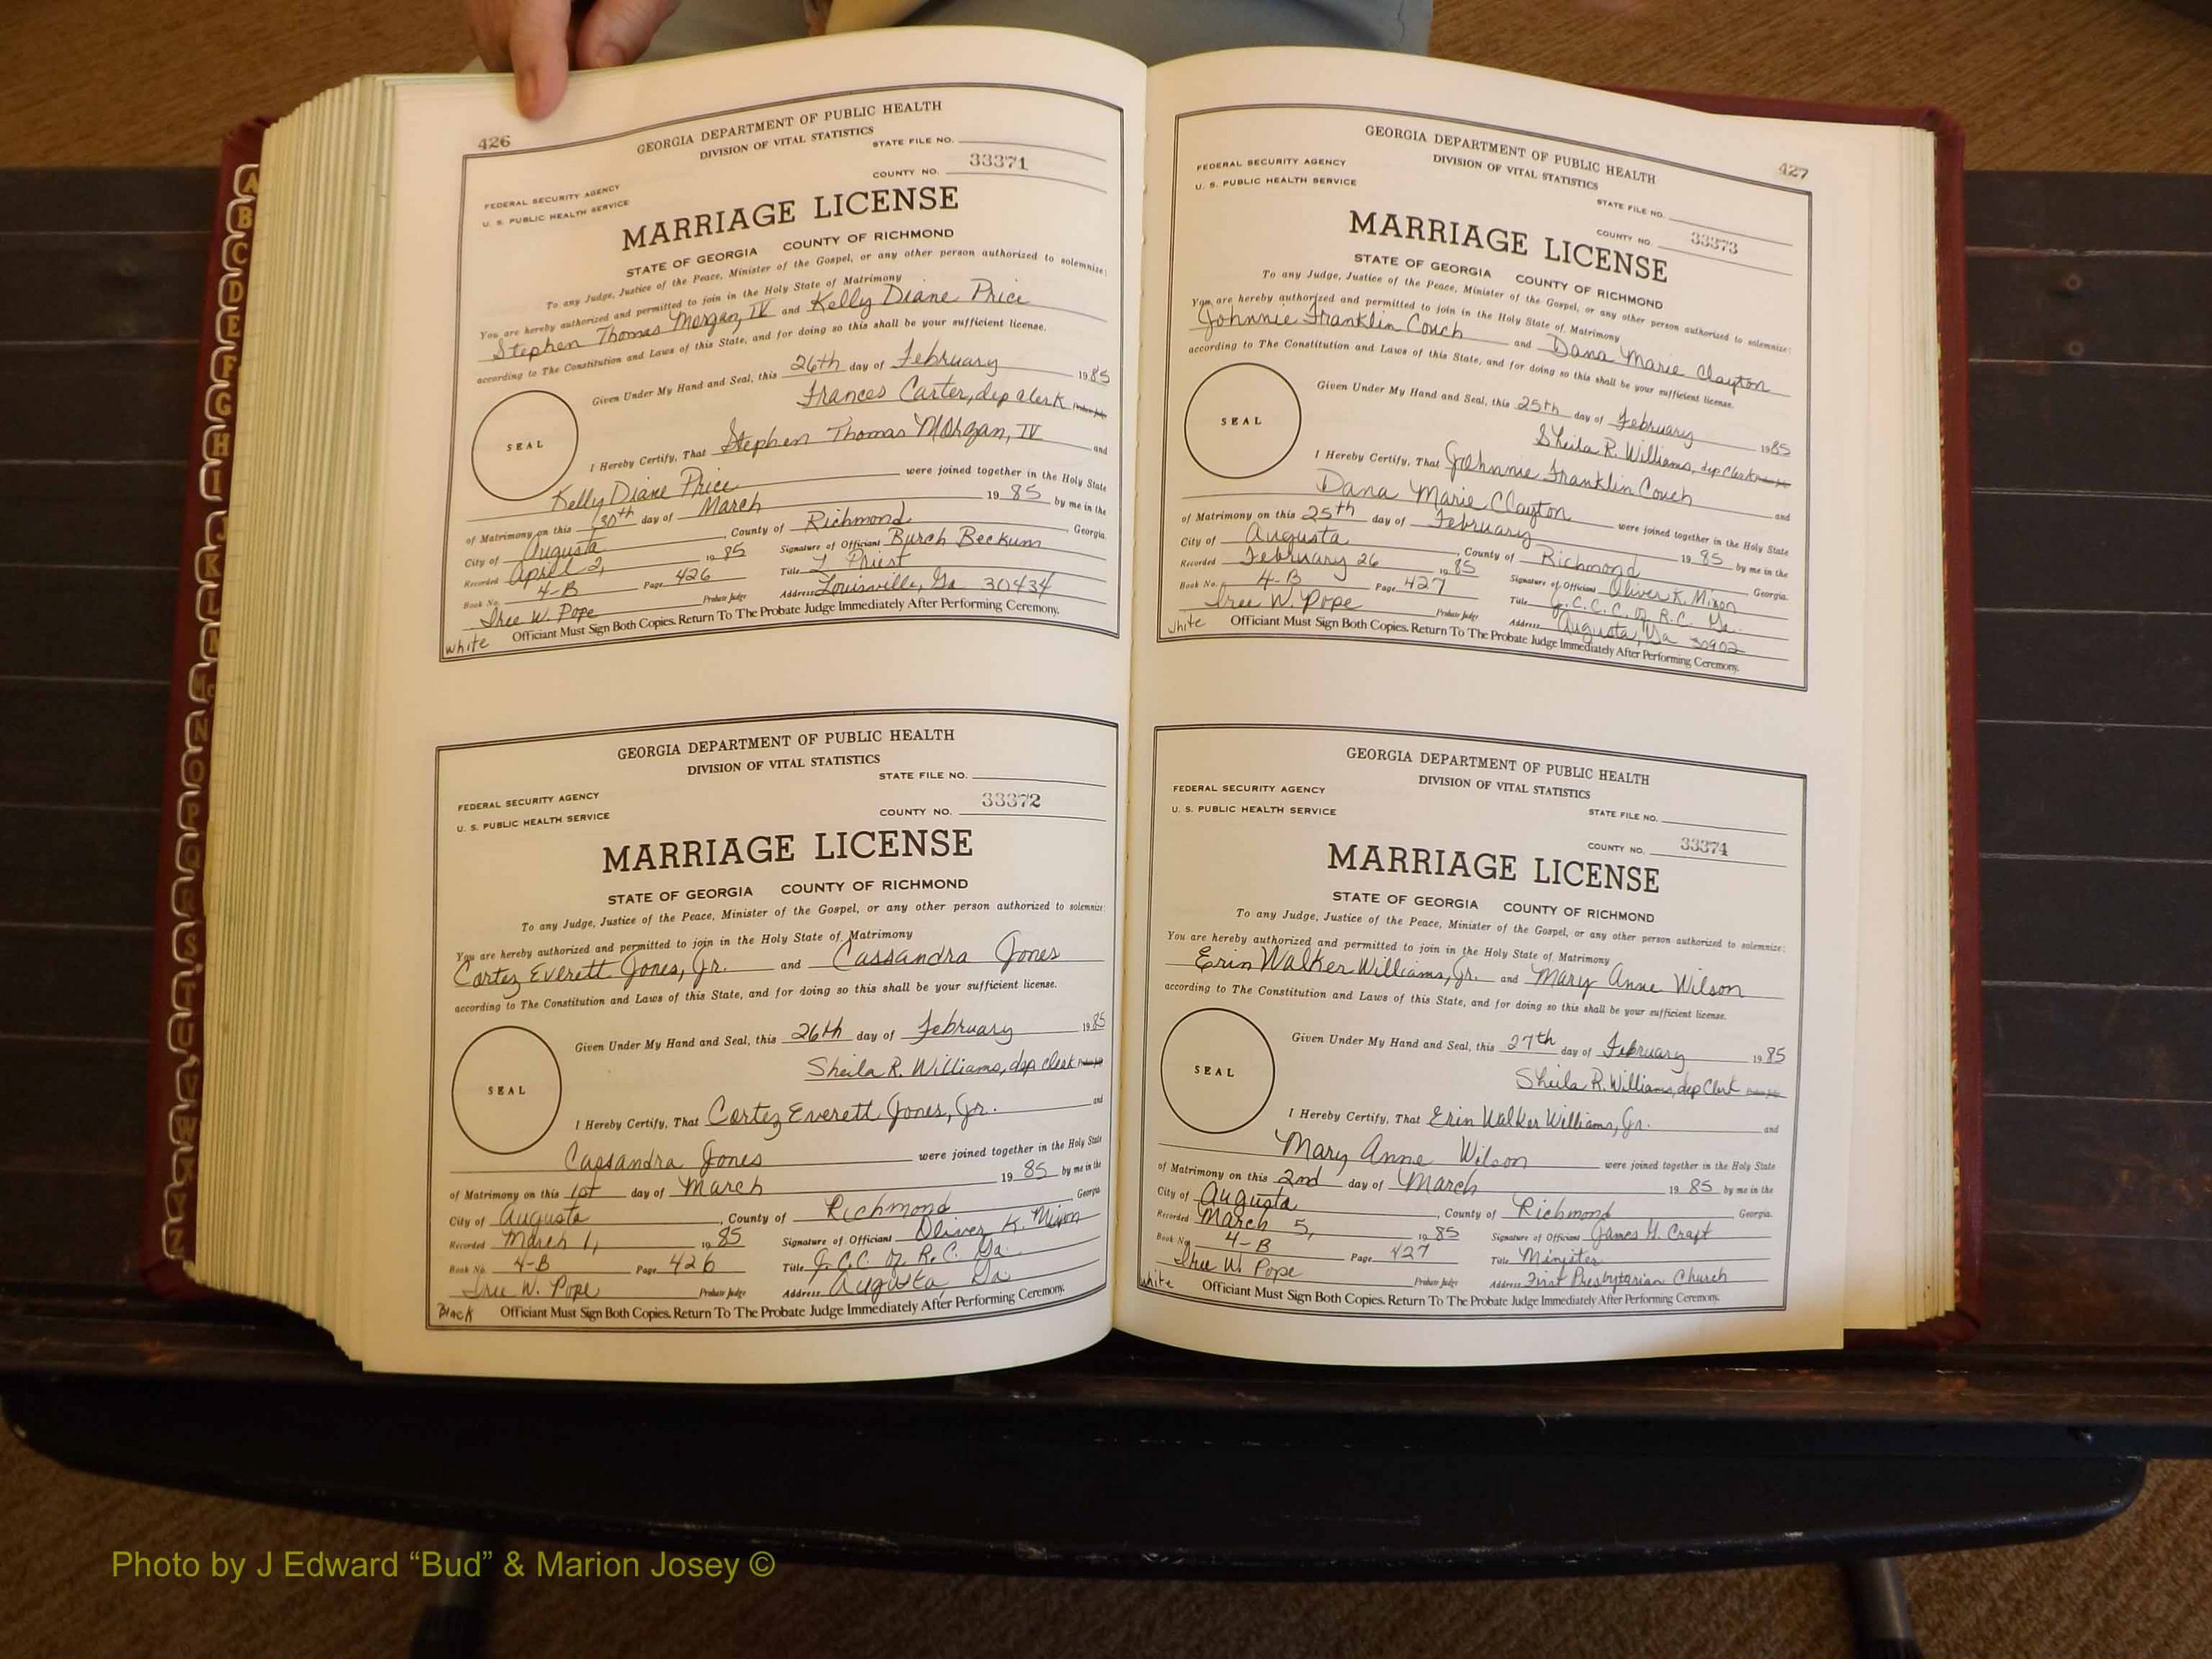 426
GEORGIA DEPARTMENT OF PUBLIC HEALTH
DIVISION OF VITAL STATISTICS
STATE FILE NO.
COUNTY NO. 33371
FEDERAL SECURITY AGENCY
U. S. PUBLIC HEALTH SERVICE
MARRIAGE LICENSE
STATE OF GEORGIA COUNTY OF RICHMOND
To any Judge, Justice of the Peace, Minister of the Gospel, or any other person authorized to solemnize:
You are hereby authorized and permitted to join in the Holy State of Matrimony
Stephen Thomas Morgan, IV and Kelly Diane Price
according to The Constitution and Laws of this State, and for doing so this shall be your sufficient license.
Given Under My Hand and Seal, this 26th day of February 1985
Frances Carter, dep clerk Probate Judge
SEAL
I Hereby Certify, That Stephen Thomas Morgan, IV and
Kelly Diane Price were joined together in the Holy State
of Matrimony on this 30th day of March 19 85 by me in the
City of Augusta, County of Richmond Georgia.
Recorded April 2, 19 85 Signature of Officiant Burch Beckum
Book No. 4-B Page 426 Title Priest
Iree W. Pope Probate Judge Address Louisville, Ga 30434
white Officiant Must Sign Both Copies. Return To The Probate Judge Immediately After Performing Ceremony.
GEORGIA DEPARTMENT OF PUBLIC HEALTH
DIVISION OF VITAL STATISTICS
STATE FILE NO.
COUNTY NO. 33372
FEDERAL SECURITY AGENCY
U. S. PUBLIC HEALTH SERVICE
MARRIAGE LICENSE
STATE OF GEORGIA COUNTY OF RICHMOND
To any Judge, Justice of the Peace, Minister of the Gospel, or any other person authorized to solemnize:
You are hereby authorized and permitted to join in the Holy State of Matrimony
Cortez Everett Jones, Jr. and Cassandra Jones
according to The Constitution and Laws of this State, and for doing so this shall be your sufficient license.
Given Under My Hand and Seal, this 26th day of February 1985
Sheila R. Williams, dep clerk Probate Judge
SEAL
I Hereby Certify, That Cortez Everett Jones, Jr. and
Cassandra Jones were joined together in the Holy State
of Matrimony on this 1st day of March 19 85 by me in the
City of Augusta, County of Richmond, Georgia.
Recorded March 1, 19 85 Signature of Officiant Oliver K. Mixon
Book No. 4-B Page 426 Title J.C.C. of R.C. Ga.
Iree W. Pope Probate Judge Address Augusta, Ga
Black Officiant Must Sign Both Copies. Return To The Probate Judge Immediately After Performing Ceremony.
427
GEORGIA DEPARTMENT OF PUBLIC HEALTH
DIVISION OF VITAL STATISTICS
FEDERAL SECURITY AGENCY
U. S. PUBLIC HEALTH SERVICE
STATE FILE NO.
COUNTY NO. 33373
MARRIAGE LICENSE
STATE OF GEORGIA COUNTY OF RICHMOND
To any Judge, Justice of the Peace, Minister of the Gospel, or any other person authorized to solemnize:
You are hereby authorized and permitted to join in the Holy State of Matrimony
Johnnie Franklin Couch and Dana Marie Clayton
according to The Constitution and Laws of this State, and for doing so this shall be your sufficient license.
Given Under My Hand and Seal, this 25th day of February 1985
Sheila R. Williams, dep Clerk Probate Judge
SEAL
I Hereby Certify, That Johnnie Franklin Couch and
Dana Marie Clayton were joined together in the Holy State
of Matrimony on this 25th day of February 19 85 by me in the
City of Augusta, County of Richmond Georgia.
Recorded February 26 19 85 Signature of Officiant Oliver K. Mixon
Book No. 4-B Page 427 Title J.C.C.C. of R.C. Ga.
Iree W. Pope Probate Judge Address Augusta, Ga 30902
white Officiant Must Sign Both Copies. Return To The Probate Judge Immediately After Performing Ceremony.
GEORGIA DEPARTMENT OF PUBLIC HEALTH
DIVISION OF VITAL STATISTICS
FEDERAL SECURITY AGENCY
U. S. PUBLIC HEALTH SERVICE
STATE FILE NO.
COUNTY NO. 33374
MARRIAGE LICENSE
STATE OF GEORGIA COUNTY OF RICHMOND
To any Judge, Justice of the Peace, Minister of the Gospel, or any other person authorized to solemnize:
You are hereby authorized and permitted to join in the Holy State of Matrimony
Erin Walker Williams, Jr. and Mary Anne Wilson
according to The Constitution and Laws of this State, and for doing so this shall be your sufficient license.
Given Under My Hand and Seal, this 27th day of February 1985
Sheila R. Williams, dep Clerk Probate Judge
SEAL
I Hereby Certify, That Erin Walker Williams, Jr. and
Mary Anne Wilson were joined together in the Holy State
of Matrimony on this 2nd day of March 19 85 by me in the
City of Augusta, County of Richmond Georgia.
Recorded March 5, 19 85 Signature of Officiant James G. Craft
Book No. 4-B Page 427 Title Minister
Iree W. Pope Probate Judge Address First Presbyterian Church
white Officiant Must Sign Both Copies. Return To The Probate Judge Immediately After Performing Ceremony.
A
B
C
D
E
F
G
H
I
J
K
L
M
Mc
N
O
P
Q
R
S
T
U
V
W
Y
Z
Photo by J Edward “Bud” & Marion Josey ©